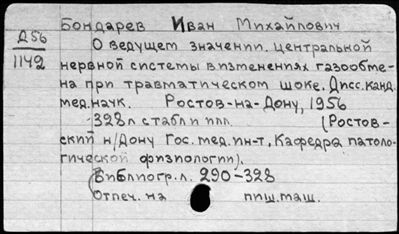 Бондарев Иван Михайлович
Д56
1142
О ведущем значении центральной
нервной системы в изменениях газообме-
на при травматическом шоке. Дисс. канд.
мед. наук. Ростов-на-Дону, 1956
328 л с табл. и илл. (Ростов-
ский н/Дону Гос. мед. ин-т, Кафедра патоло-
гической физиологии).
(Библиогр. л. 290-328
Отпеч. на пиш. маш.